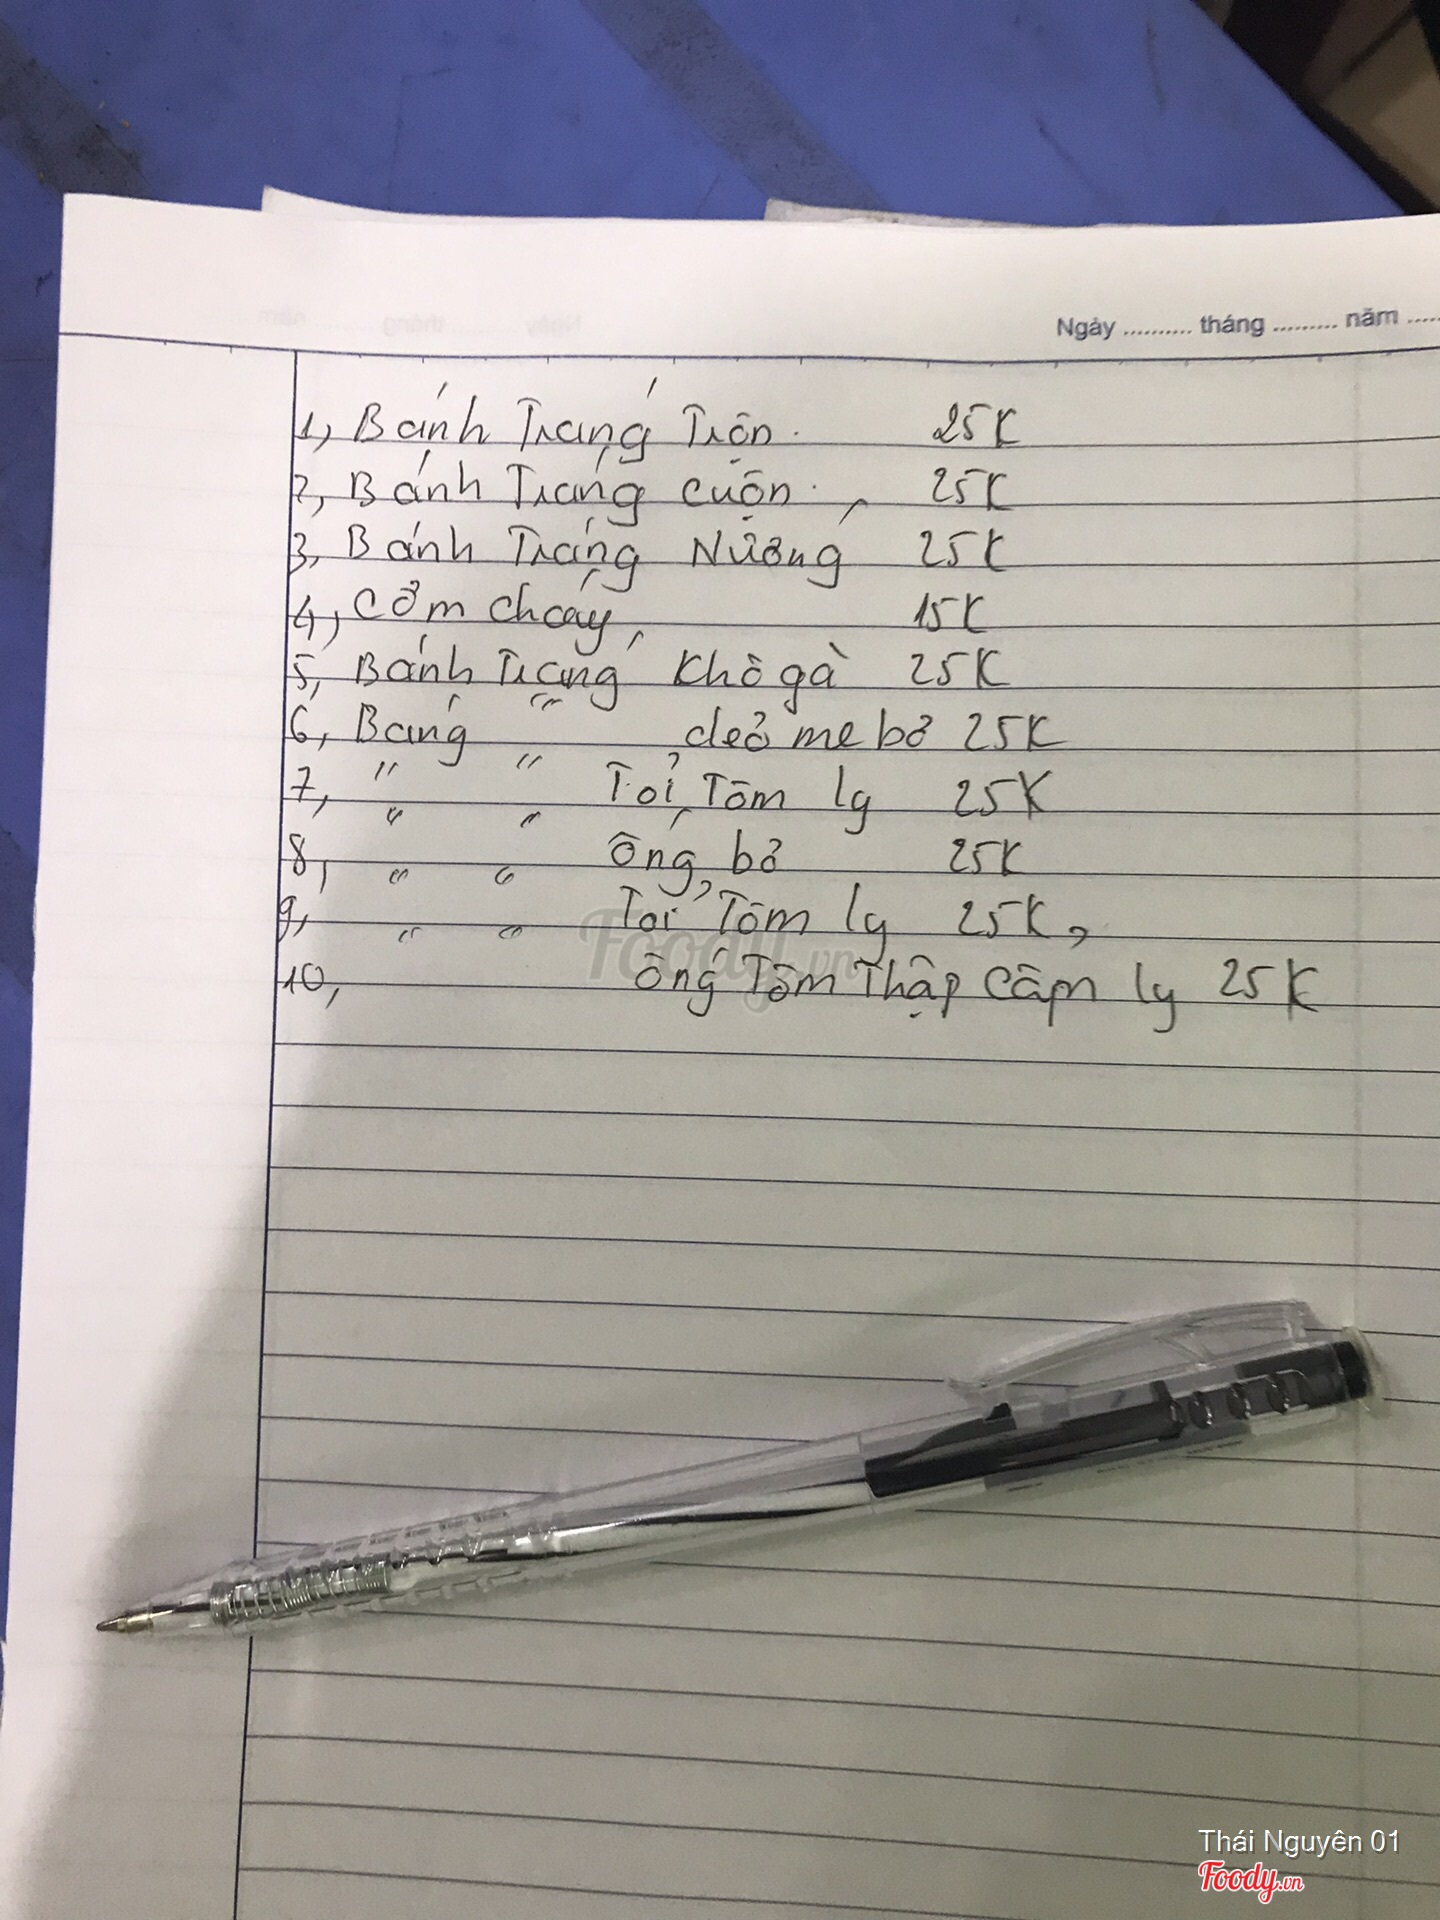 Ngày .......... tháng ......... năm .....
1, Bánh Tráng Trộn. 25K
2, Bánh Tráng cuộn. 25K
3, Bánh Tráng Nướng 25K
4, Cơm cháy, 15K
5, Bánh Tráng Khô gà 25K
6, Báng " dẻo me bơ 25K
7, " " Tỏi Tôm ly 25K
8, " " Ống bơ 25K
9, " " Tỏi Tôm ly 25K,
10, " " Ống Tôm Thập Cẩm ly 25K
Foody.vn
Thái Nguyên 01
Foody.vn